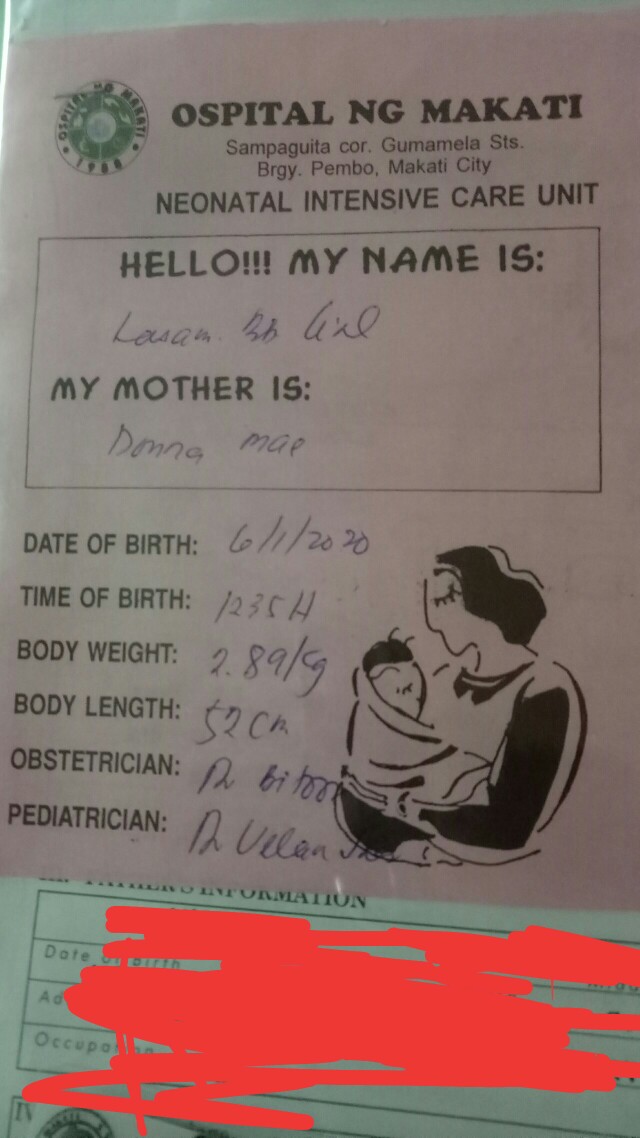 OSPITAL NG MAKATI
1988
OSPITAL NG MAKATI
Sampaguita cor. Gumamela Sts.
Brgy. Pembo, Makati City
NEONATAL INTENSIVE CARE UNIT
HELLO!!! MY NAME IS:
Lasam. Bb Girl
MY MOTHER IS:
Donna mae
DATE OF BIRTH: 6/1/2020
TIME OF BIRTH: 1235H
BODY WEIGHT: 2.89/kg
BODY LENGTH: 52 cm
OBSTETRICIAN: Dr
PEDIATRICIAN: Dr
FATHER'S INFORMATION
Date of Birth
IV